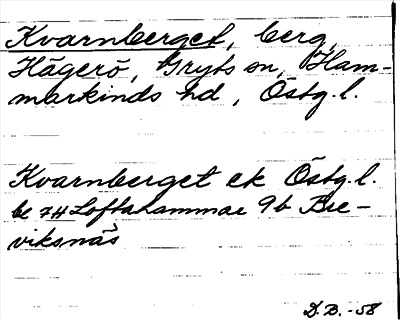 Kvarnberget, berg,
Hägerö, Gryts sn, Ham-
markinds hd, Östg. l.
Kvarnberget ek Östg. l.
bl 7H Loftahammar 9b Bre-
viksnäs
D.B. -58